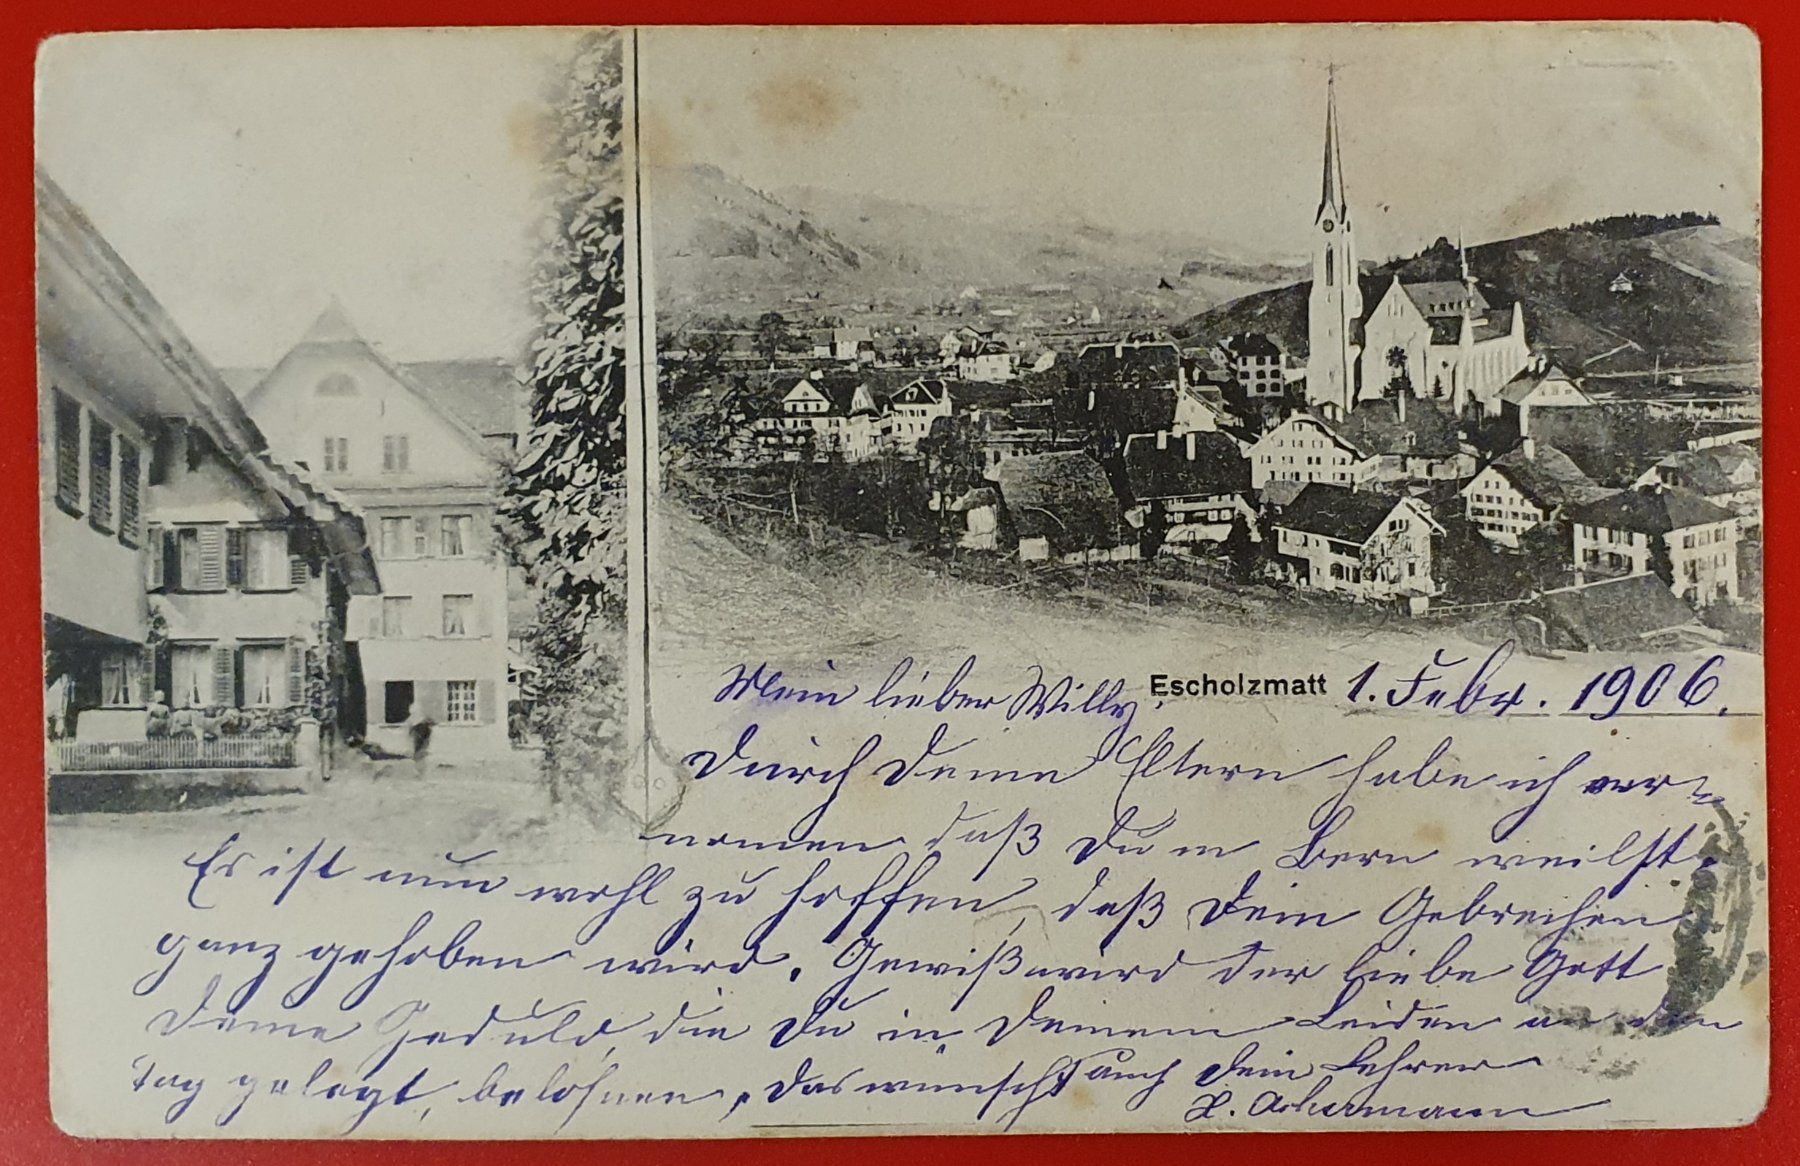 Escholzmatt 1. Febr. 1906.
Mein lieber Willy.
Durch Deine Eltern habe ich ver-
nomen daß Du in Bern weilst.
Es ist nun wohl zu hoffen, daß Dein Gebrechen
ganz gehoben wird. Gewiß wird der liebe Gott
Deine Geduld, die Du in Deinem Leiden an den
Tag gelegt, belohnen, das wünscht auch Dein Lehrer
Ackermann